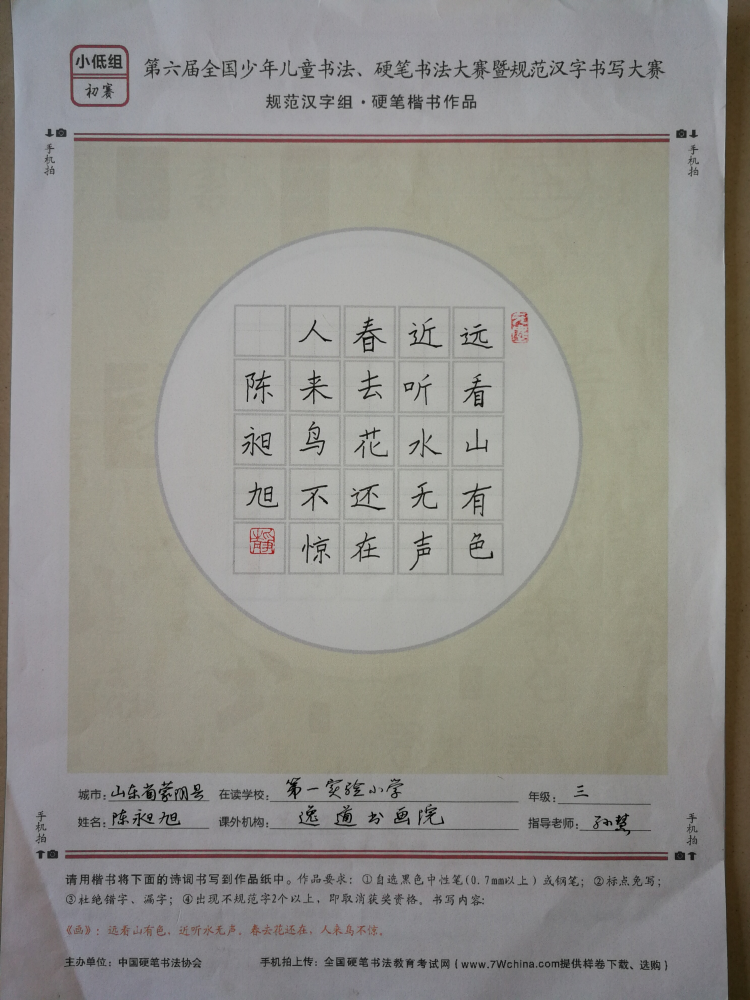 小低组
初赛
第六届全国少年儿童书法、硬笔书法大赛暨规范汉字书写大赛
规范汉字组·硬笔楷书作品
手机拍
手机拍
远看山有色
近听水无声
春去花还在
人来鸟不惊
陈昶旭
城市：山东省蒙阴县 在读学校：第一实验小学 年级：三
姓名：陈昶旭 课外机构：逸道书画院 指导老师：孙慧
手机拍
手机拍
请用楷书将下面的诗词书写到作品纸中。作品要求：①自选黑色中性笔(0.7mm以上)或钢笔；②标点免写；
③杜绝错字、漏字；④出现不规范字2个以上，即取消获奖资格。书写内容：
《画》：远看山有色，近听水无声。春去花还在，人来鸟不惊。
主办单位：中国硬笔书法协会 手机拍上传：全国硬笔书法教育考试网（www.7Wchina.com提供样卷下载、选购）